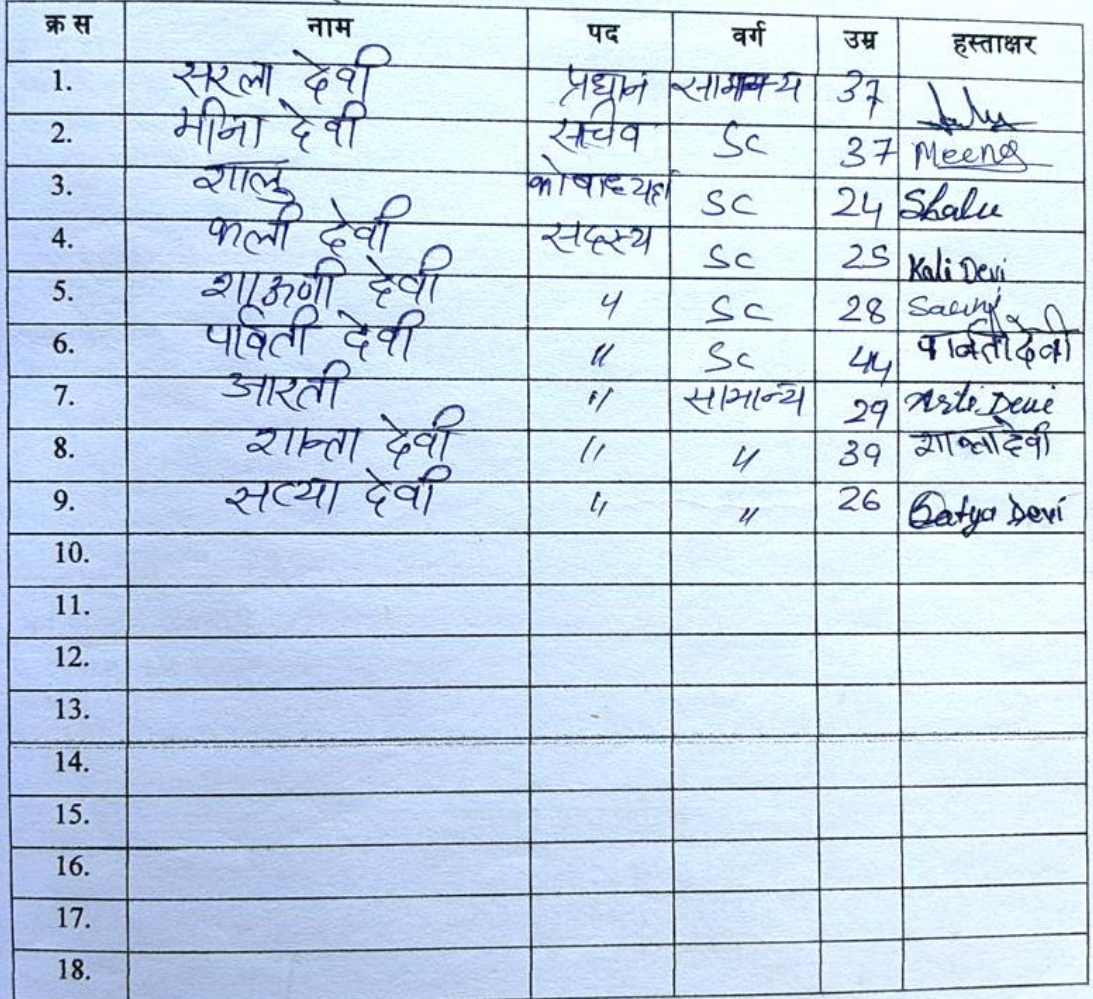 क्र स नाम पद वर्ग उम्र हस्ताक्षर
1. सरला देवी प्रधान सामान्य 37
2. मीना देवी सचिव SC 37 Meena
3. शालु कोषाध्यक्ष SC 24 Shalu
4. कली देवी सदस्य SC 25 Kali Devi
5. शाऊणी देवी " SC 28
6. पार्वती देवी " SC 44 पार्वती देवी
7. आरती " सामान्य 29 Arti Devi
8. शान्ता देवी " " 39 शान्ता देवी
9. सत्या देवी " " 26 Satya Devi
10.
11.
12.
13.
14.
15.
16.
17.
18.